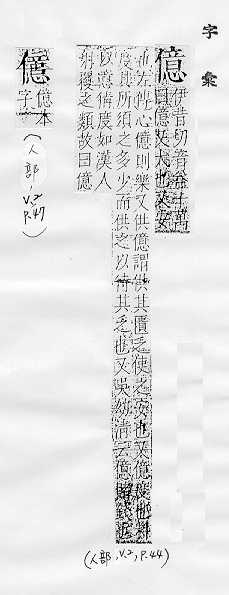 字彙
億
伊昔切音益十萬
曰億又大也又安
也左傳心億則樂又供億謂供其匱乏使之安也又億度也料
度其所須之多少而供之以待其乏也又吳幼清云億
以意億度如漢人
射覆之類故曰億
(人部, V.2, P.44)
億本
字
(人部, V.2, P.47)